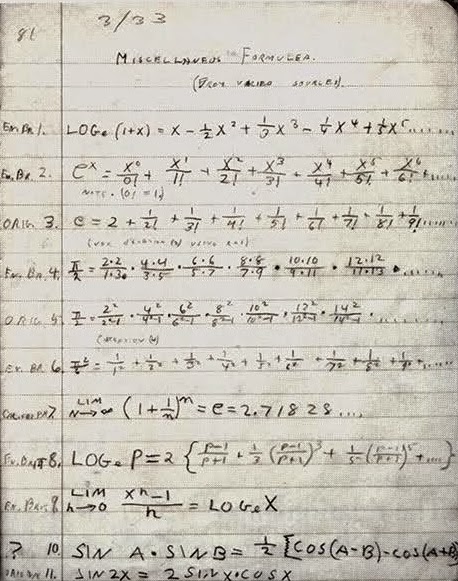 81
3/33
MISCELLANEOUS FORMULEA.
(FROM VARIED SOURCES).
EN. BR. 1. LOGe (1+x) = x - ½x² + ⅓x³ - ¼x⁴ + ⅕x⁵ ......
EN. BR. 2. eˣ = x⁰/0! + x¹/1! + x²/2! + x³/3! + x⁴/4! + x⁵/5! + x⁶/6! + ....
NOTE. (0! = 1.)
ORIG. 3. e = 2 + 1/2! + 1/3! + 1/4! + 1/5! + 1/6! + 1/7! + 1/8! + 1/9! ......
USING
EN. BR. 4. π/2 = 2·2/1·3 · 4·4/3·5 · 6·6/5·7 · 8·8/7·9 · 10·10/9·11 · 12·12/11·13 · ......
ORIG. 5. π/2 = 2²/2²-1 · 4²/4²-1 · 6²/6²-1 · 8²/8²-1 · 10²/10²-1 · 12²/12²-1 · 14²/14²-1 · ......
EN. BR. 6. π²/6 = 1/1² + 1/2² + 1/3² + 1/4² + 1/5² + 1/6² + 1/7² + 1/8² + 1/9² + ......
7. LIM N→∞ (1 + 1/n)ⁿ = e = 2.71828 ....
8. LOGe P = 2 {P-1/P+1 + 1/3 (P-1/P+1)³ + 1/5 (P-1/P+1)⁵ + ....}
9. LIM h→0 xʰ-1/h = LOGe X
? 10. SIN A · SIN B = ½ [COS(A-B) - COS(A+B)
11. SIN 2X = 2 SIN X · COS X